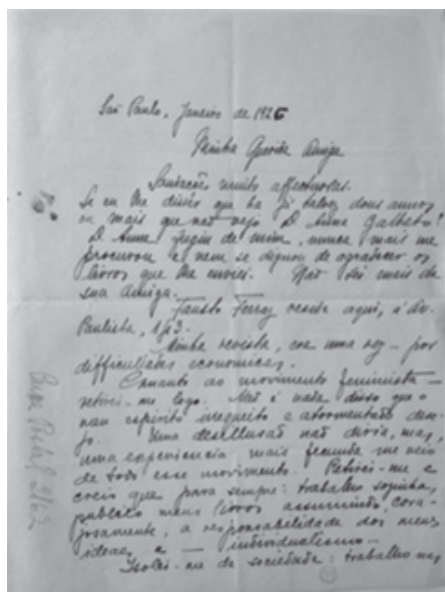 São Paulo, Janeiro de 1926
Minha Querida Amiga
Saudações muito affectuosas.
Se eu lhe disser que ha já talvez dous annos
ou mais que não vejo D. Anna
D. Anna fugiu de mim, nunca mais me
procurou e nem se dignou de agradecer os
livros que lhe enviei. Não sei mais de
sua amiga.
Fausto Ferraz reside aqui, á Av.
Paulista, 113.
Minha revista, com uma vez – por
difficuldades economicas.
Quanto ao movimento feminista –
retirei-me logo. Não é nada disso que o
meu espirito irrequieto e atormentado dese-
jo. Uma desillusão não diria, mas,
uma experiencia mais fecunda me veio
de todo esse movimento. Retirei-me e
creio que para sempre: trabalho sozinha,
publico meus livros assumindo, cora-
josamente, a responsabilidade dos meus
ideaes, e — individualismo —
Isolei-me da sociedade: trabalho na,
Caixa Postal 2162